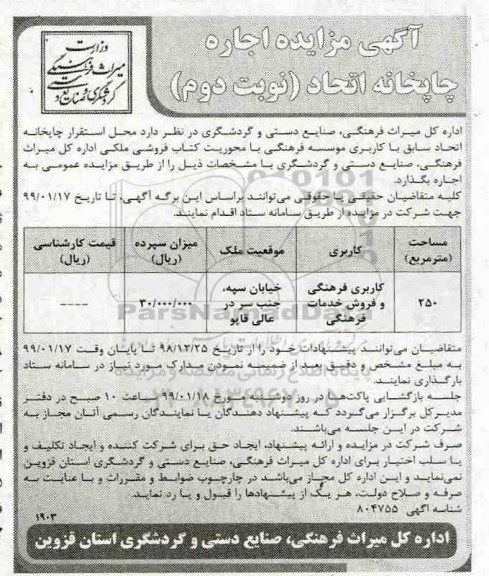 آگهی مزایده اجاره
چاپخانه اتحاد (نوبت دوم)
وزارت
میراث فرهنگی
گردشگری و صنایع دستی
اداره کل میراث فرهنگی، صنایع دستی و گردشگری در نظر دارد محل استقرار چاپخانه
اتحاد سابق با کاربری موسسه فرهنگی با محوریت کتاب فروشی ملکی اداره کل میراث
فرهنگی، صنایع دستی و گردشگری با مشخصات ذیل را از طریق مزایده عمومی به
اجاره بگذارد.
کلیه متقاضیان حقیقی یا حقوقی می‌توانند براساس این برگه آگهی، تا تاریخ ۹۹/۰۱/۱۷
جهت شرکت در مزایده از طریق سامانه ستاد اقدام نمایند.
مساحت (مترمربع) کاربری موقعیت ملک میزان سپرده (ریال) قیمت کارشناسی (ریال)
۲۵۰ کاربری فرهنگی و فروش خدمات فرهنگی خیابان سپه، جنب سر در عالی قاپو ۳۰/۰۰۰/۰۰۰ ----
متقاضیان می‌توانند پیشنهادات خود را از تاریخ ۹۸/۱۲/۲۵ تا پایان وقت ۹۹/۰۱/۱۷
به مبلغ مشخص و دقیق بعد از ضمیمه نمودن مدارک مورد نیاز در سامانه ستاد
بارگذاری نمایند.
جلسه بازگشایی پاکت‌ها در روز دوشنبه مورخ ۹۹/۰۱/۱۸ ساعت ۱۰ صبح در دفتر
مدیرکل برگزار می‌گردد که پیشنهاد دهندگان یا نمایندگان رسمی آنان مجاز به
شرکت در این جلسه می‌باشند.
صرف شرکت در مزایده و ارائه پیشنهاد، ایجاد حق برای شرکت کننده و ایجاد تکلیف و
یا سلب اختیار برای اداره کل میراث فرهنگی، صنایع دستی و گردشگری استان قزوین
نمی‌نماید و این اداره کل مجاز می‌باشد در چارچوب ضوابط و مقررات و با عنایت به
صرفه و صلاح دولت، هر یک از پیشنهادها را قبول و یا رد نماید.
شناسه آگهی ۸۰۴۷۵۵
۱۹۰۳
اداره کل میراث فرهنگی، صنایع دستی و گردشگری استان قزوین
ParsNamadData